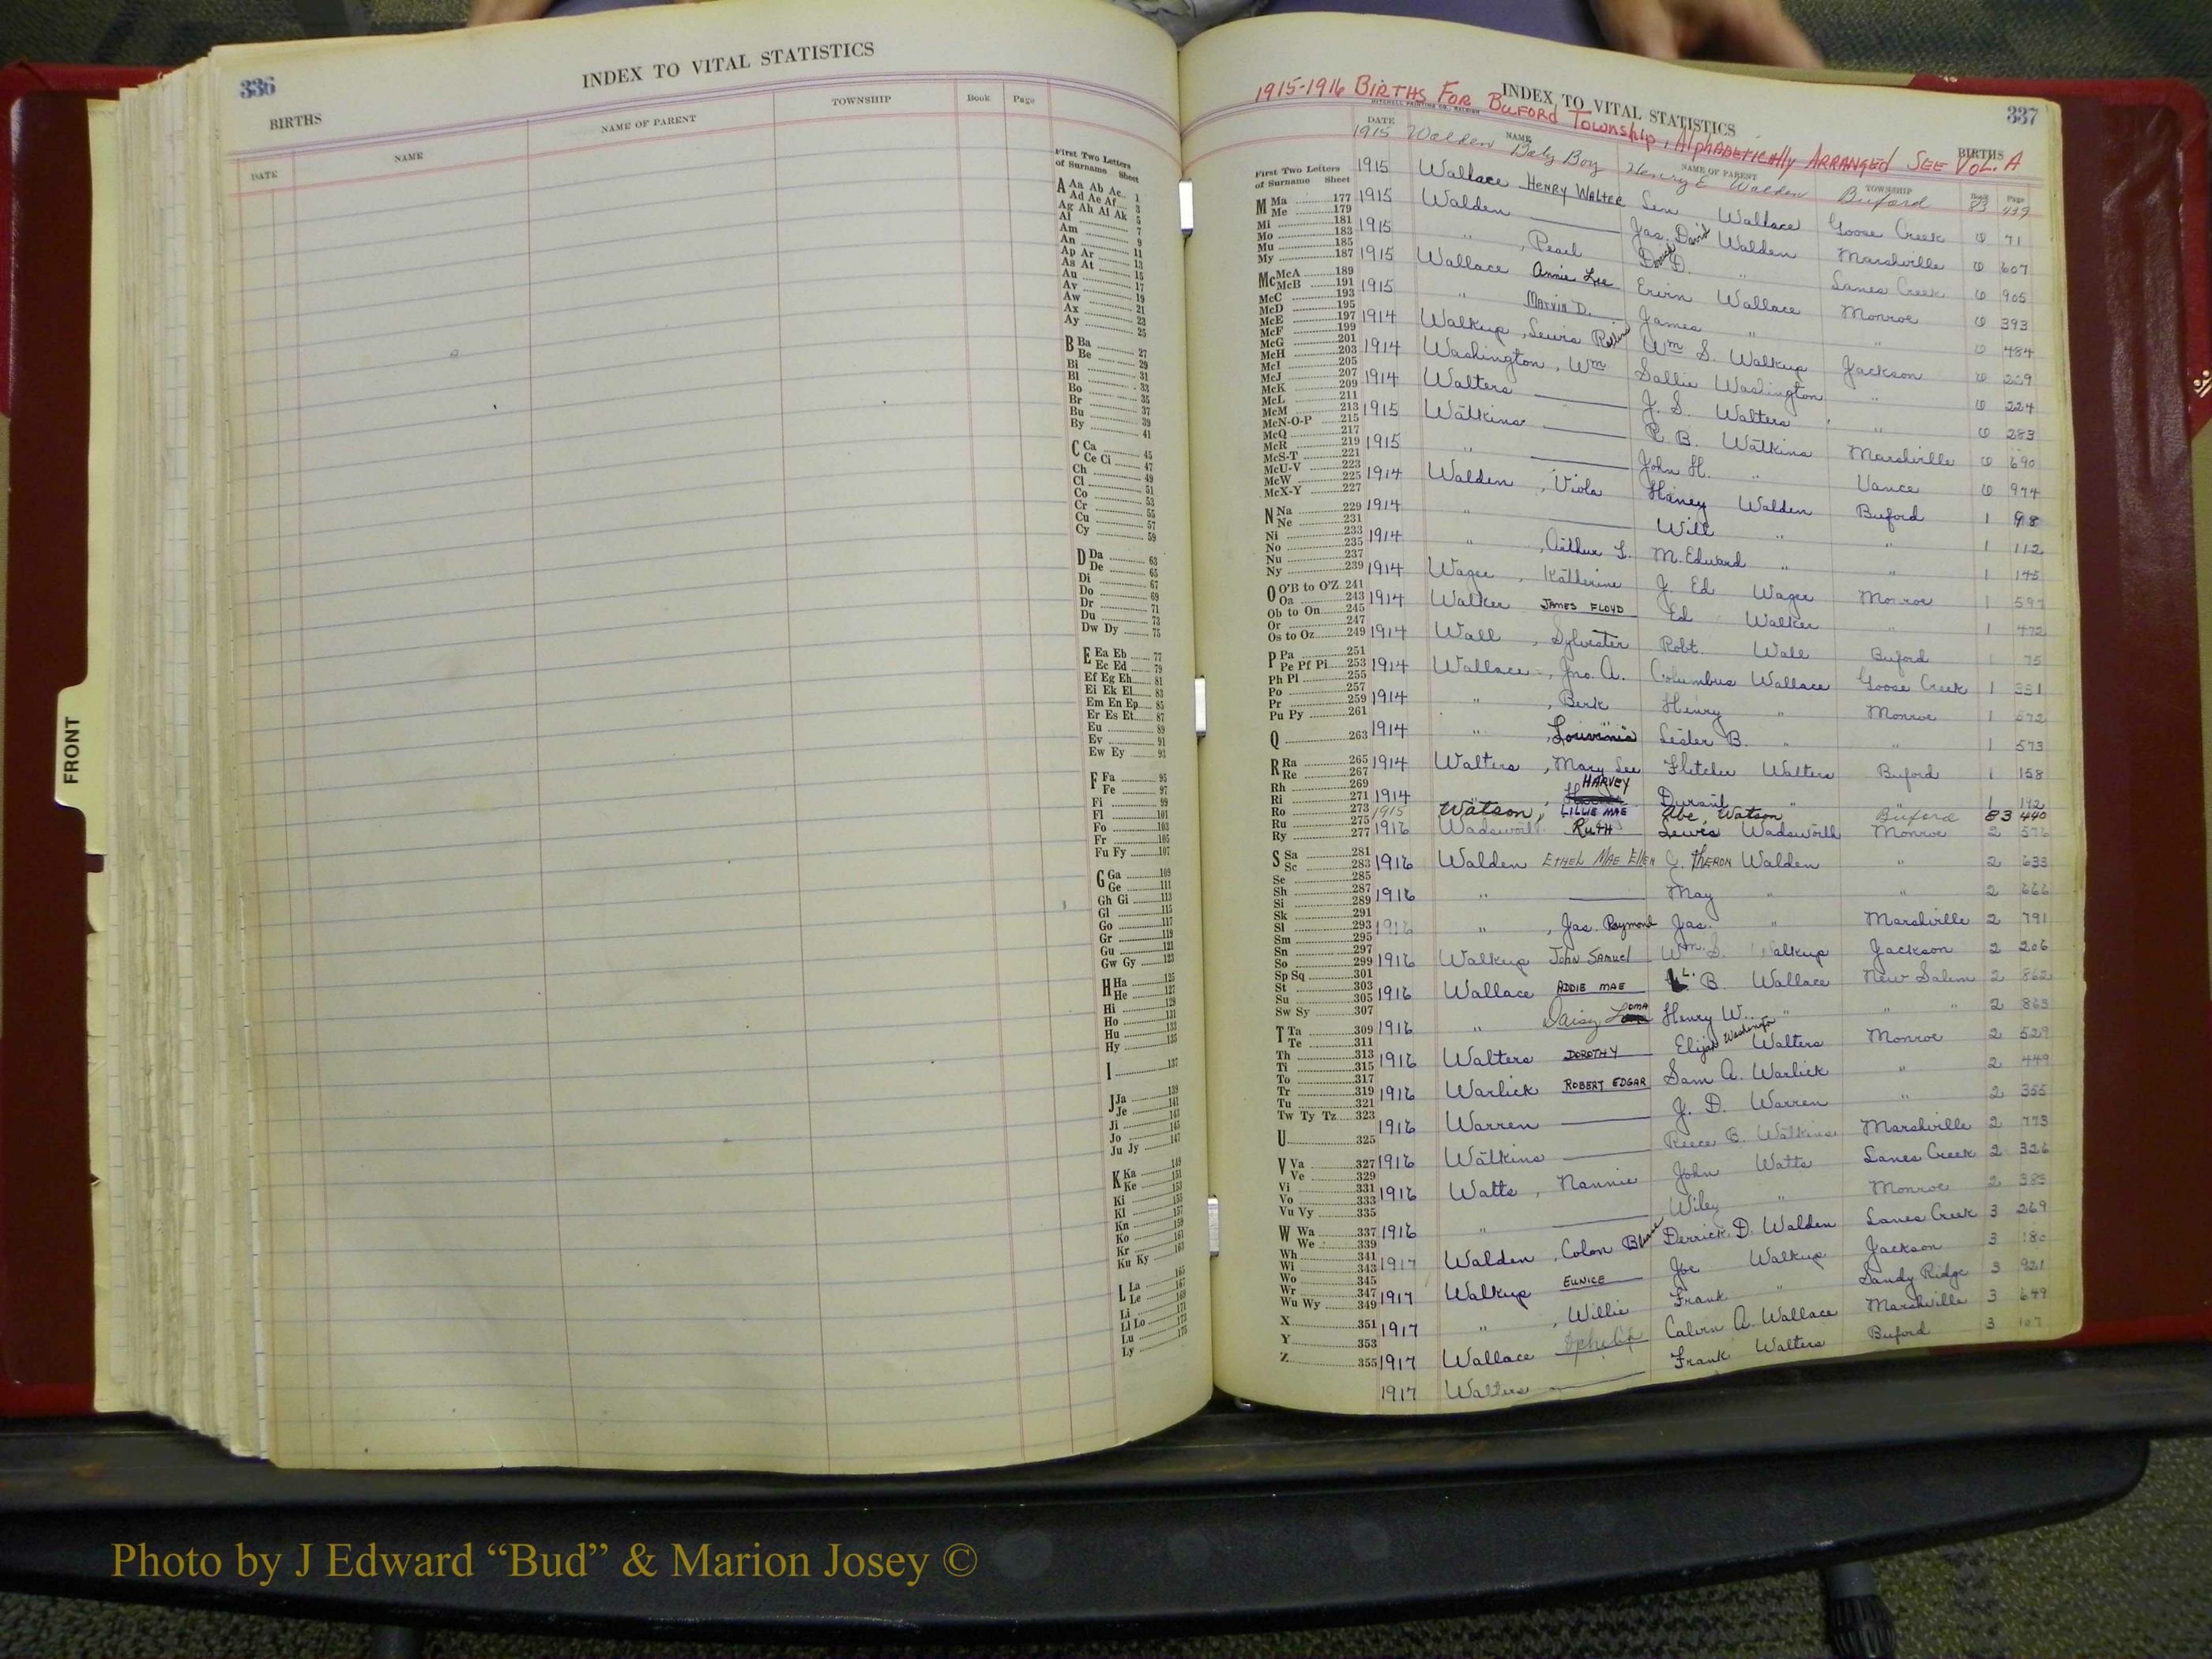 336
INDEX TO VITAL STATISTICS
BIRTHS
DATE NAME NAME OF PARENT TOWNSHIP Book Page
First Two Letters
of Surname Sheet
A Aa Ab Ac 1
Ad Ae Af 3
Ag Ah Ai Ak 5
Al 7
Am 9
An 11
Ap Ar 13
As At 15
Au 17
Av 19
Aw 21
Ax 23
Ay 25
B Ba 27
Be 29
Bi 31
Bl 33
Bo 35
Br 37
Bu 39
By 41
C Ca 45
Ce Ci 47
Ch 49
Cl 51
Co 53
Cr 55
Cu 57
Cy 59
D Da 63
De 65
Di 67
Do 69
Dr 71
Du 73
Dw Dy 75
E Ea Eb 77
Ec Ed 79
Ef Eg Eh 81
Ei Ek El 83
Em En Ep 85
Er Es Et 87
Eu 89
Ev 91
Ew Ey 93
F Fa 95
Fe 97
Fi 99
Fl 101
Fo 103
Fr 105
Fu Fy 107
G Ga 109
Ge 111
Gh Gi 113
Gl 115
Go 117
Gr 119
Gu 121
Gw Gy 123
H Ha 125
He 127
Hi 129
Ho 131
Hu 133
Hy 135
I 137
J Ja 139
Je 141
Ji 143
Jo 145
Ju Jy 147
K Ka 149
Ke 151
Ki 153
Kl 155
Kn 157
Ko 159
Kr 161
Ku Ky 163
L La 165
Le 167
Li 169
Ll Lo 171
Lu 173
Ly 175
FRONT
337
INDEX TO VITAL STATISTICS
1915-1916 BIRTHS FOR BUFORD TOWNSHIP, ALPHABETICALLY ARRANGED SEE VOL. A
MITCHELL PRINTING CO., RALEIGH
BIRTHS
DATE NAME NAME OF PARENT TOWNSHIP Book Page
First Two Letters
of Surname Sheet
M Ma 177
Me 179
Mi 181
Mo 183
Mu 185
My 187
Mc McA 189
McB 191
McC 193
McD 195
McE 197
McF 199
McG 201
McH 203
McI 205
McJ 207
McK 209
McL 211
McM 213
McN-O-P 215
McQ 217
McR 219
McS-T 221
McU-V 223
McW 225
McX-Y 227
N Na 229
Ne 231
Ni 233
No 235
Nu 237
Ny 239
O O'B to O'Z 241
Oa 243
Ob to On 245
Or 247
Os to Oz 249
P Pa 251
Pe Pf Pi 253
Ph Pl 255
Po 257
Pr 259
Pu Py 261
Q 263
R Ra 265
Re 267
Rh 269
Ri 271
Ro 273
Ru 275
Ry 277
S Sa 281
Sc 283
Se 285
Sh 287
Si 289
Sk 291
Sl 293
Sm 295
Sn 297
So 299
Sp Sq 301
St 303
Su 305
Sw Sy 307
T Ta 309
Te 311
Th 313
Ti 315
To 317
Tr 319
Tu 321
Tw Ty Tz 323
U 325
V Va 327
Ve 329
Vi 331
Vo 333
Vu Vy 335
W Wa 337
We 339
Wh 341
Wi 343
Wo 345
Wr 347
Wu Wy 349
X 351
Y 353
Z 355
1915 Walden Baby Boy Henry E Walden Buford 83 439
1915 Wallace HENRY WALTER Wallace Goose Creek 0 71
1915 Walden Jas. David Walden Marshville 0 607
1915 " , Pearl David D. " Lanes Creek 0 905
1915 Wallace Annie Lee Ervin Wallace Monroe 0 393
1915 " MARVIN D. James " " 0 484
1914 Walkup, Lewis Wm S. Walkup Jackson 0 229
1914 Washington, Wm Sallie Washington " 0 224
1914 Walters J. S. Walters " 0 283
1915 Watkins R. B. Watkins Marshville 0 690
1915 " John H. " Vance 0 974
1914 Walden, Viola Haney Walden Buford 1 98
1914 " Will " " 1 112
1914 " , Arthur L. M. Edward " " 1 145
1914 Wager, Katherine J. Ed Wager Monroe 1
1914 Walker JAMES FLOYD Ed Walker " 1 472
1914 Wall, Sylvester Robt. Wall Buford 1 75
1914 Wallace, Jno. A. Columbus Wallace Goose Creek 1 331
1914 " , Berk Henry " Monroe 1 572
1914 " , Louvinia Lester B. " " 1 573
1914 Walters, Mary Lee Fletcher Walters Buford 1 158
1914 " , HARVEY Durant " " 1 192
1915 Watson, LILLIE MAE Abe, Watson Buford 83 440
1916 Wadsworth RUTH Lewis Wadsworth Monroe 2 576
1916 Walden ETHEL MAE ELLEN C. THERON Walden " 2 633
1916 " May " " 2 666
1916 " , Jas. Raymond Jas. " Marshville 2 791
1916 Walkup JOHN SAMUEL Wm. S. Walkup Jackson 2 206
1916 Wallace ADDIE MAE L. B. Wallace New Salem 2 862
1916 " Daisy LOMA Henry W. " " " 2 863
1916 Walters DOROTHY Elijah Washington Walters Monroe 2 529
1916 Warlick ROBERT EDGAR Sam A. Warlick " 2 449
1916 Warren J. D. Warren " 2 355
1916 Watkins Reece B. Watkins Marshville 2 773
1916 Watts, Nannie John Watts Lanes Creek 2 326
1916 " Wiley " Monroe 2 383
1917 Walden, Colon Derrick D. Walden Lanes Creek 3 269
1917 Walkup EUNICE Joe Walkup Jackson 3 180
1917 " , Willie Frank " Sandy Ridge 3 921
1917 Wallace Calvin A. Wallace Marshville 3 649
1917 Walters Frank Walters Buford 3 107
Photo by J Edward “Bud” & Marion Josey ©